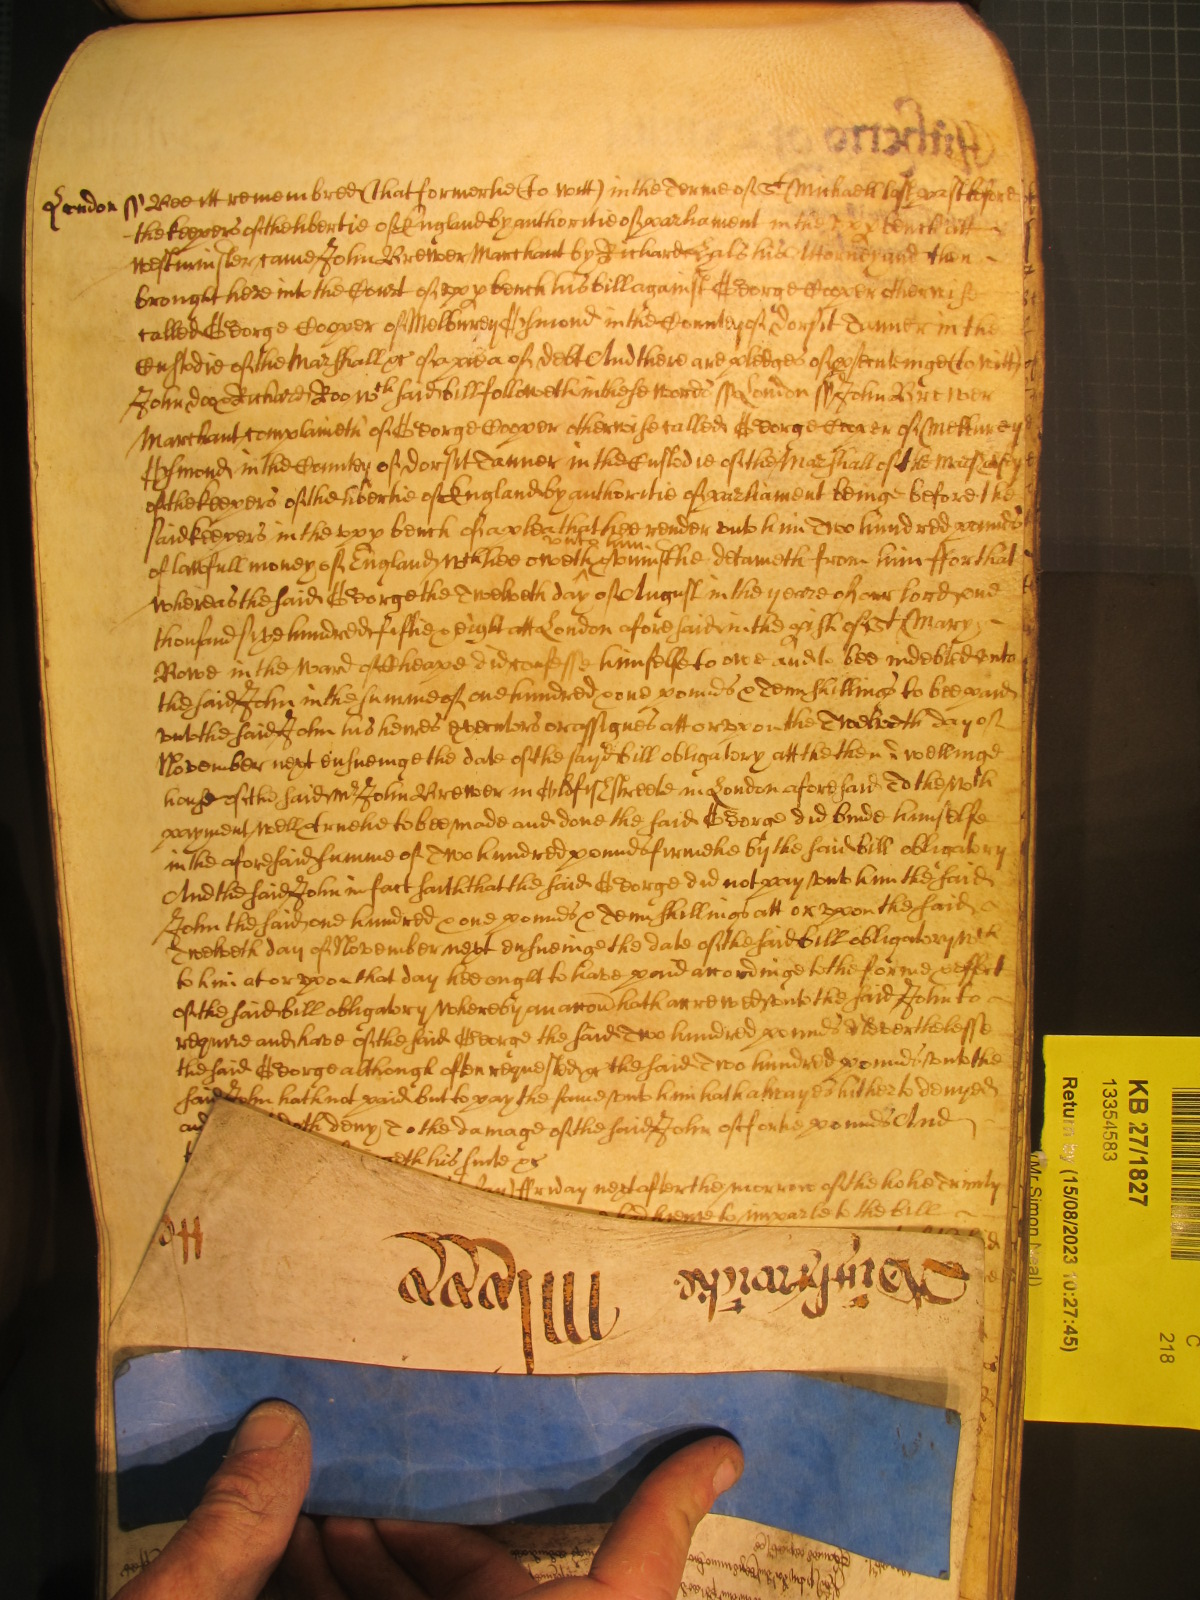 London ss Bee itt remembred That formerlie (to witt) in the Terme of St Michaell last past before
the keepers of the libertie of England by authoritie of parliament in the vpp bench att
Westminster came John Brewer Marchant by Richard his Attorney and then
brought here into the Court of vpp bench his bill against George Cooper otherwise
called George Cooper of Melburey Osmond in the Countey of Dorsit Tanner in the
Custodie of the Marshall &c of a plea of debt And there are pledges of prosecuteinge (to witt)
John doe & Richard Roo wch said bill followeth in these words ss London ss John Brewer
Marchant complaineth of George Cooper otherwise called George Cooper of Melburey
Osmond in the Countey of Dorsit Tanner in the Custodie of the Marshall of the Marshalsey
of the keepers of the libertie of England by authoritie of parliament being before the
said keepers in the vpp bench of a plea that hee render vnto him Two hundred pounds
of lawfull money of England wch hee oweth vnto him & uniustlie detaineth from him ffor that
whereas the said George the Twelveth day of August in the yeare of our lord one
thousand sixe hundred fiftie & eight att London aforesaid in the parish of St Mary
Bowe in the Ward of Cheape did confesse himselfe to owe and to bee indebted vnto
the said John in the summe of one hundred & one pounds & Tenn shillings to bee paid
vnto the said John his heires executors or assignes att or vpon the Twelveth day of
November next ensueinge the date of the said bill obligatory att the then dwellinge
house of the said Mr John Brewer in Oldfish streete in London aforesaid To the wch
payment well & truelie to bee made and done the said George did binde himselfe
in the aforesaid summe of Two hundred pounds firmelie by the said bill obligatory
And the said John in fact saith that the said George did not pay vnto him the said
John the said one hundred & one pounds & Tenn shillings att or vpon the said
Twelveth day of November next ensueinge the date of the said bill obligatory wch
to him at or vpon that day hee ought to have paid accordinge to the forme & effect
of the said bill obligatory whereby an accon hath accrewed vnto the said John to
require and have of the said George the said Two hundred pounds Neverthelesse
the said George although often requested &c the said Two hundred pounds vnto the
said John hath not paid but to pay the same vnto him hath alwayes hitherto denyed
and doth deny To the damage of the said John of fortie pounds And
his suite &c
ffriday next after the morrow of the holie Trinity
to imparle to the bill
KB 27/1827
13354583
Return by (15/08/2023 10:27:45)
(Mr Simon Neal)
C
218